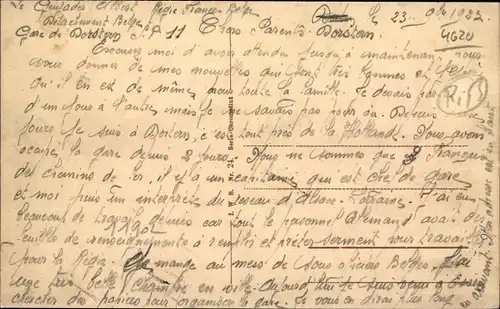 Le Guidades Albert Régie Franco-Belge
Détachement Belge
Gare de Dorstern S.P 11 Chers Parents. Dorstern. le 23. 1923
4620
Excusez moi d'avoir attendu jusqu'à maintenant pour vous
vous donner de mes nouvelles qui sont très bonnes et j'espère
qu'il en est de même pour toute la famille. Je devais
d'un jour à l'autre mais je ne savais pas où. Depuis
jours je suis à Dorstern, c'est tout près de la Hollande. Nous avons
occupé la gare depuis 8 jours. Nous ne sommes que 3 Français
des chemins de fer, il y a un capitaine qui est chef de gare
et moi puis un interprète du réseau d'Alsace-Lorraine. J'ai eu
beaucoup de travail depuis car tout le personnel allemand avait des
feuilles de renseignements à remplir et prêter serment pour travailler
pour la Régie. Je mange au mess de sous officiers Belges. J'ai
une très belle chambre en ville. Aujourd'hui je suis venu à Essen
chercher des papiers pour organiser la gare. Je vous en dirai plus long
R.F.
I. W. B. Nr. 24